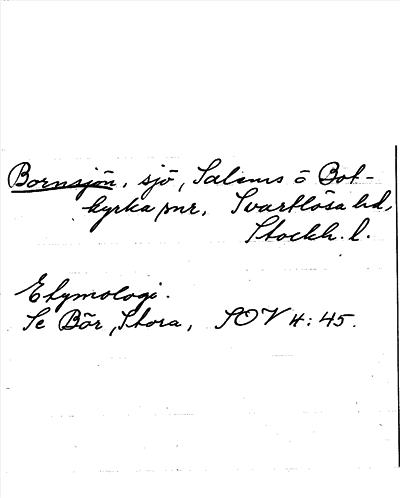 Bornsjön, sjö, Salems o Bot-
kyrka snr, Svartlösa hd,
Stockh. l.
Etymologi.
Se Bör, Stora, SOV 4:45.